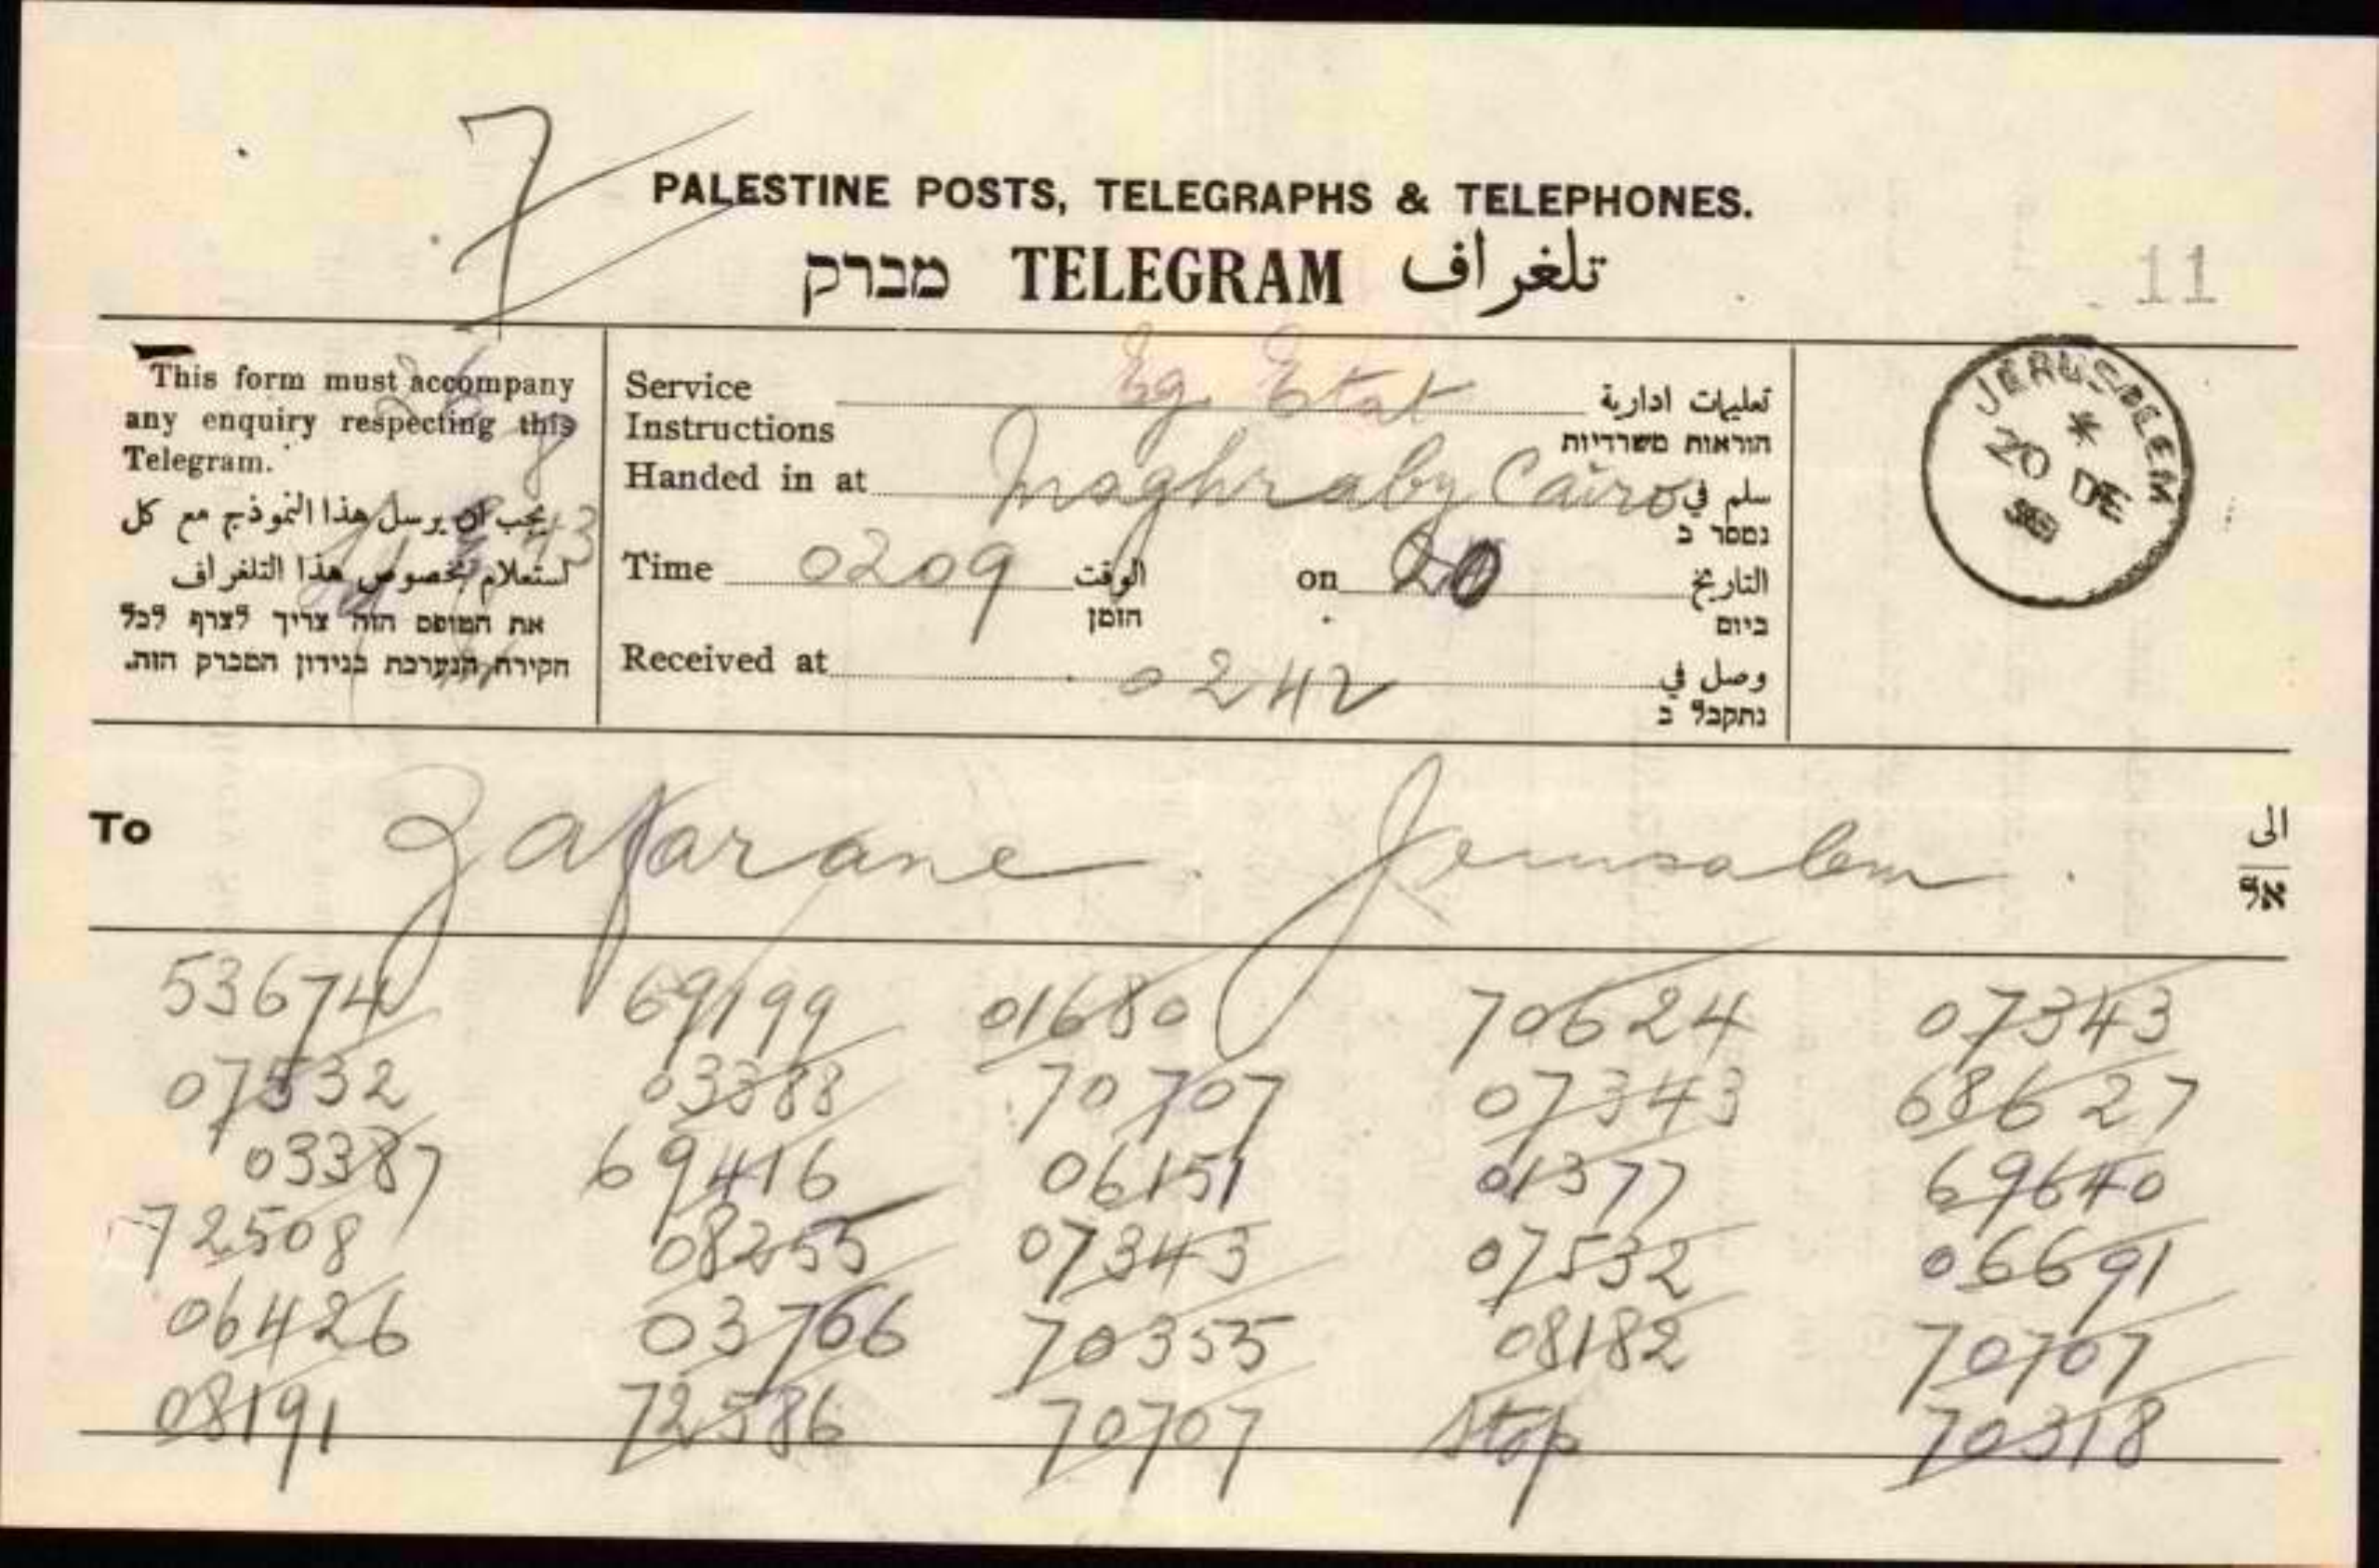 7
PALESTINE POSTS, TELEGRAPHS & TELEPHONES.
מברק TELEGRAM تلغراف
11
This form must accompany
any enquiry respecting this
Telegram.
يجب ان يرسل هذا النموذج مع كل
استعلام بخصوص هذا التلغراف
את הטופס הזה צריך לצרף לכל
חקירה הנערכת בנידון המברק הזה.
Service Eg. Etat تعليمات ادارية
Instructions הוראות משרדיות
Handed in at Maghraby Cairo سلم في
נמסר ב
Time 0209 الوقت on 20 التاريخ
הזמן ביום
Received at 0242 وصل في
נתקבל ב
JERUSALEM
20 DE
To Zafarane Jerusalem الى
אל
53674 69199 01680 70624 07343
07532 03388 70707 07343 68627
03387 69416 06151 01377 69640
72508 08255 07343 07532 06691
06426 03766 70355 08182 70707
08191 72586 70707 stop 70318